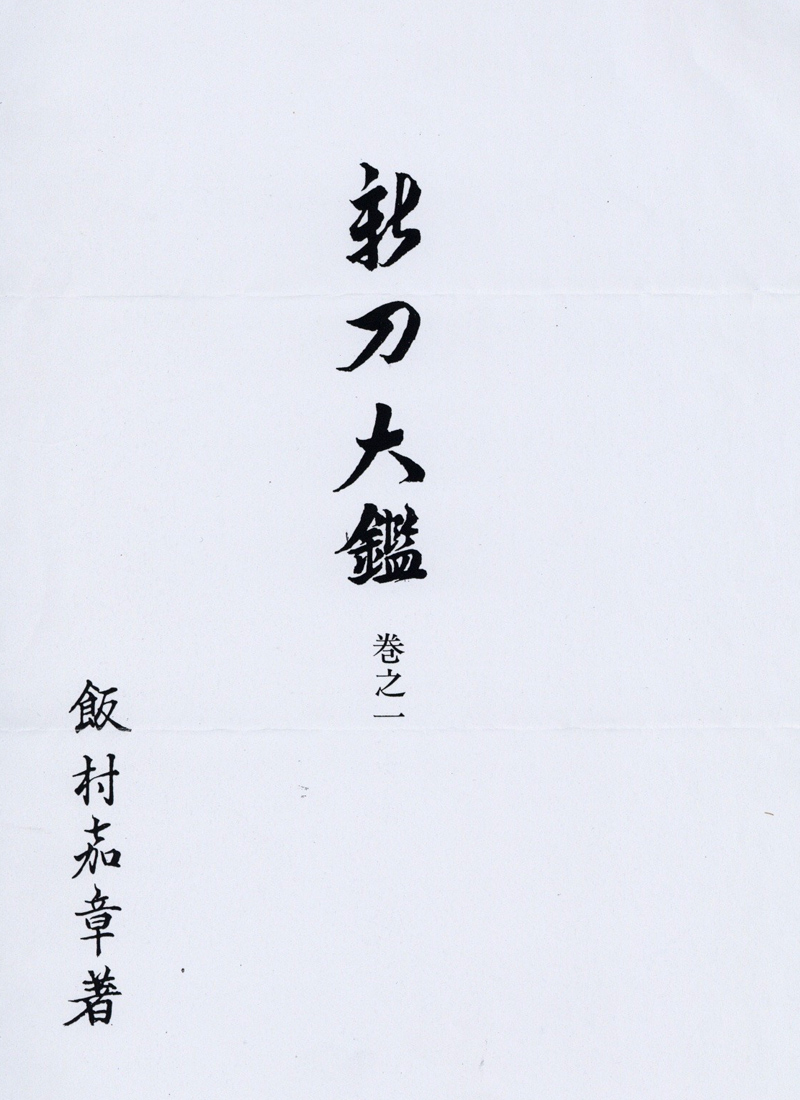 新刀大鑑
巻之一
飯村嘉章著